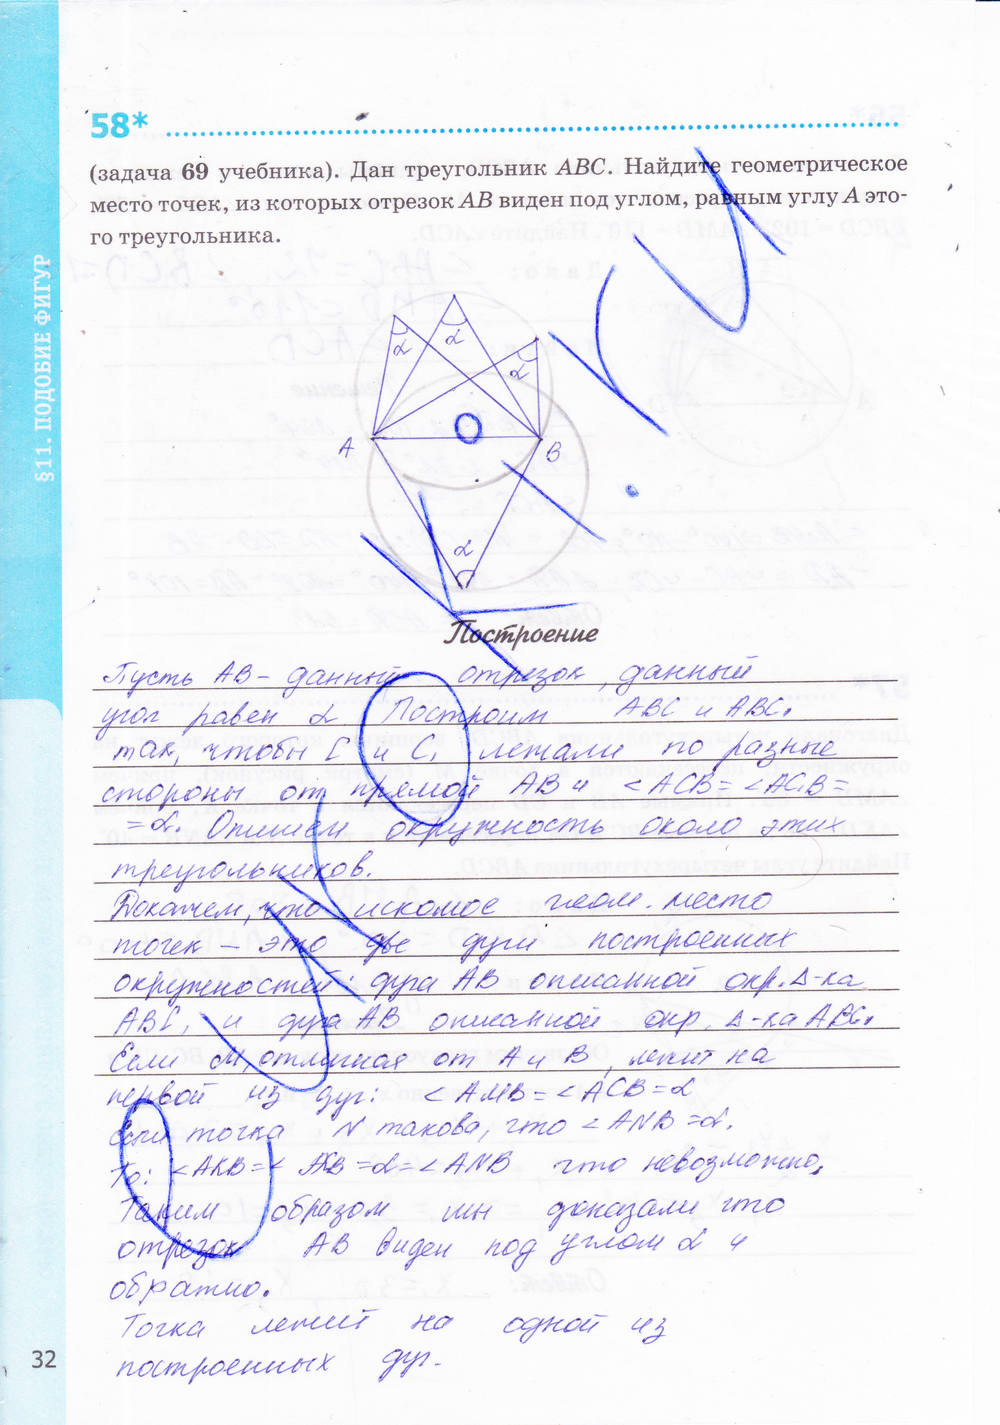 58*
(задача 69 учебника). Дан треугольник ABC. Найдите геометрическое
место точек, из которых отрезок AB виден под углом, равным углу A это-
го треугольника.
§11. ПОДОБИЕ ФИГУР
α
α
α
A
B
α
Построение
Пусть AB - данный отрезок, данный
угол равен α. Построим ABC и ABC₁
так, чтобы C и C₁ лежали по разные
стороны от прямой AB и ∠ACB = ∠AC₁B =
= α. Опишем окружность около этих
треугольников.
Докажем, что искомое геом. место
точек – это две дуги построенных
окружностей: дуга AB описанной окр. Δ-ка
ABC, и дуга AB описанной окр. Δ-ка ABC₁
Если M, отличная от A и B, лежит на
первой из дуг: ∠AMB = ∠ACB = α
Если точка N такова, что ∠ANB = α.
То: ∠AKB = ∠ = α = ∠ANB, что невозможно.
Таким образом мы доказали что
отрезок AB виден под углом α и
обратно.
Точка лежит на одной из
построенных дуг.
32